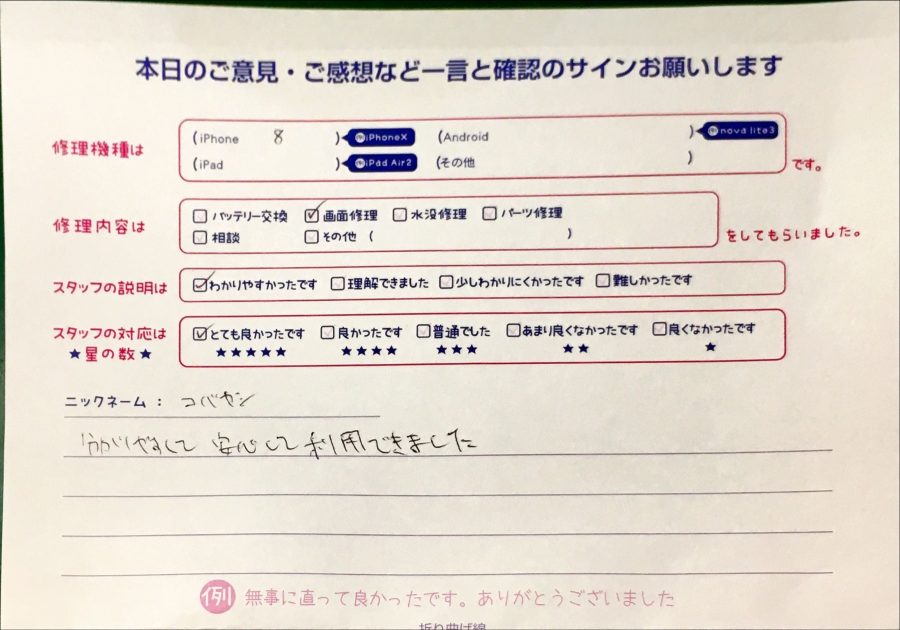 本日のご意見・ご感想など一言と確認のサインお願いします
修理機種は
(iPhone 8 ) 例iPhoneX (Android ) 例nova lite3
(iPad ) 例iPad Air2 (その他 ) です。
修理内容は
バッテリー交換 画面修理 水没修理 パーツ修理
相談 その他 ( ) をしてもらいました。
スタッフの説明は わかりやすかったです 理解できました 少しわかりにくかったです 難しかったです
スタッフの対応は とても良かったです 良かったです 普通でした あまり良くなかったです 良くなかったです
★星の数★ ★★★★★ ★★★★ ★★★ ★★ ★
ニックネーム: コバヤシ
安心して利用できました
例 無事に直って良かったです。ありがとうございました
折り曲げ線